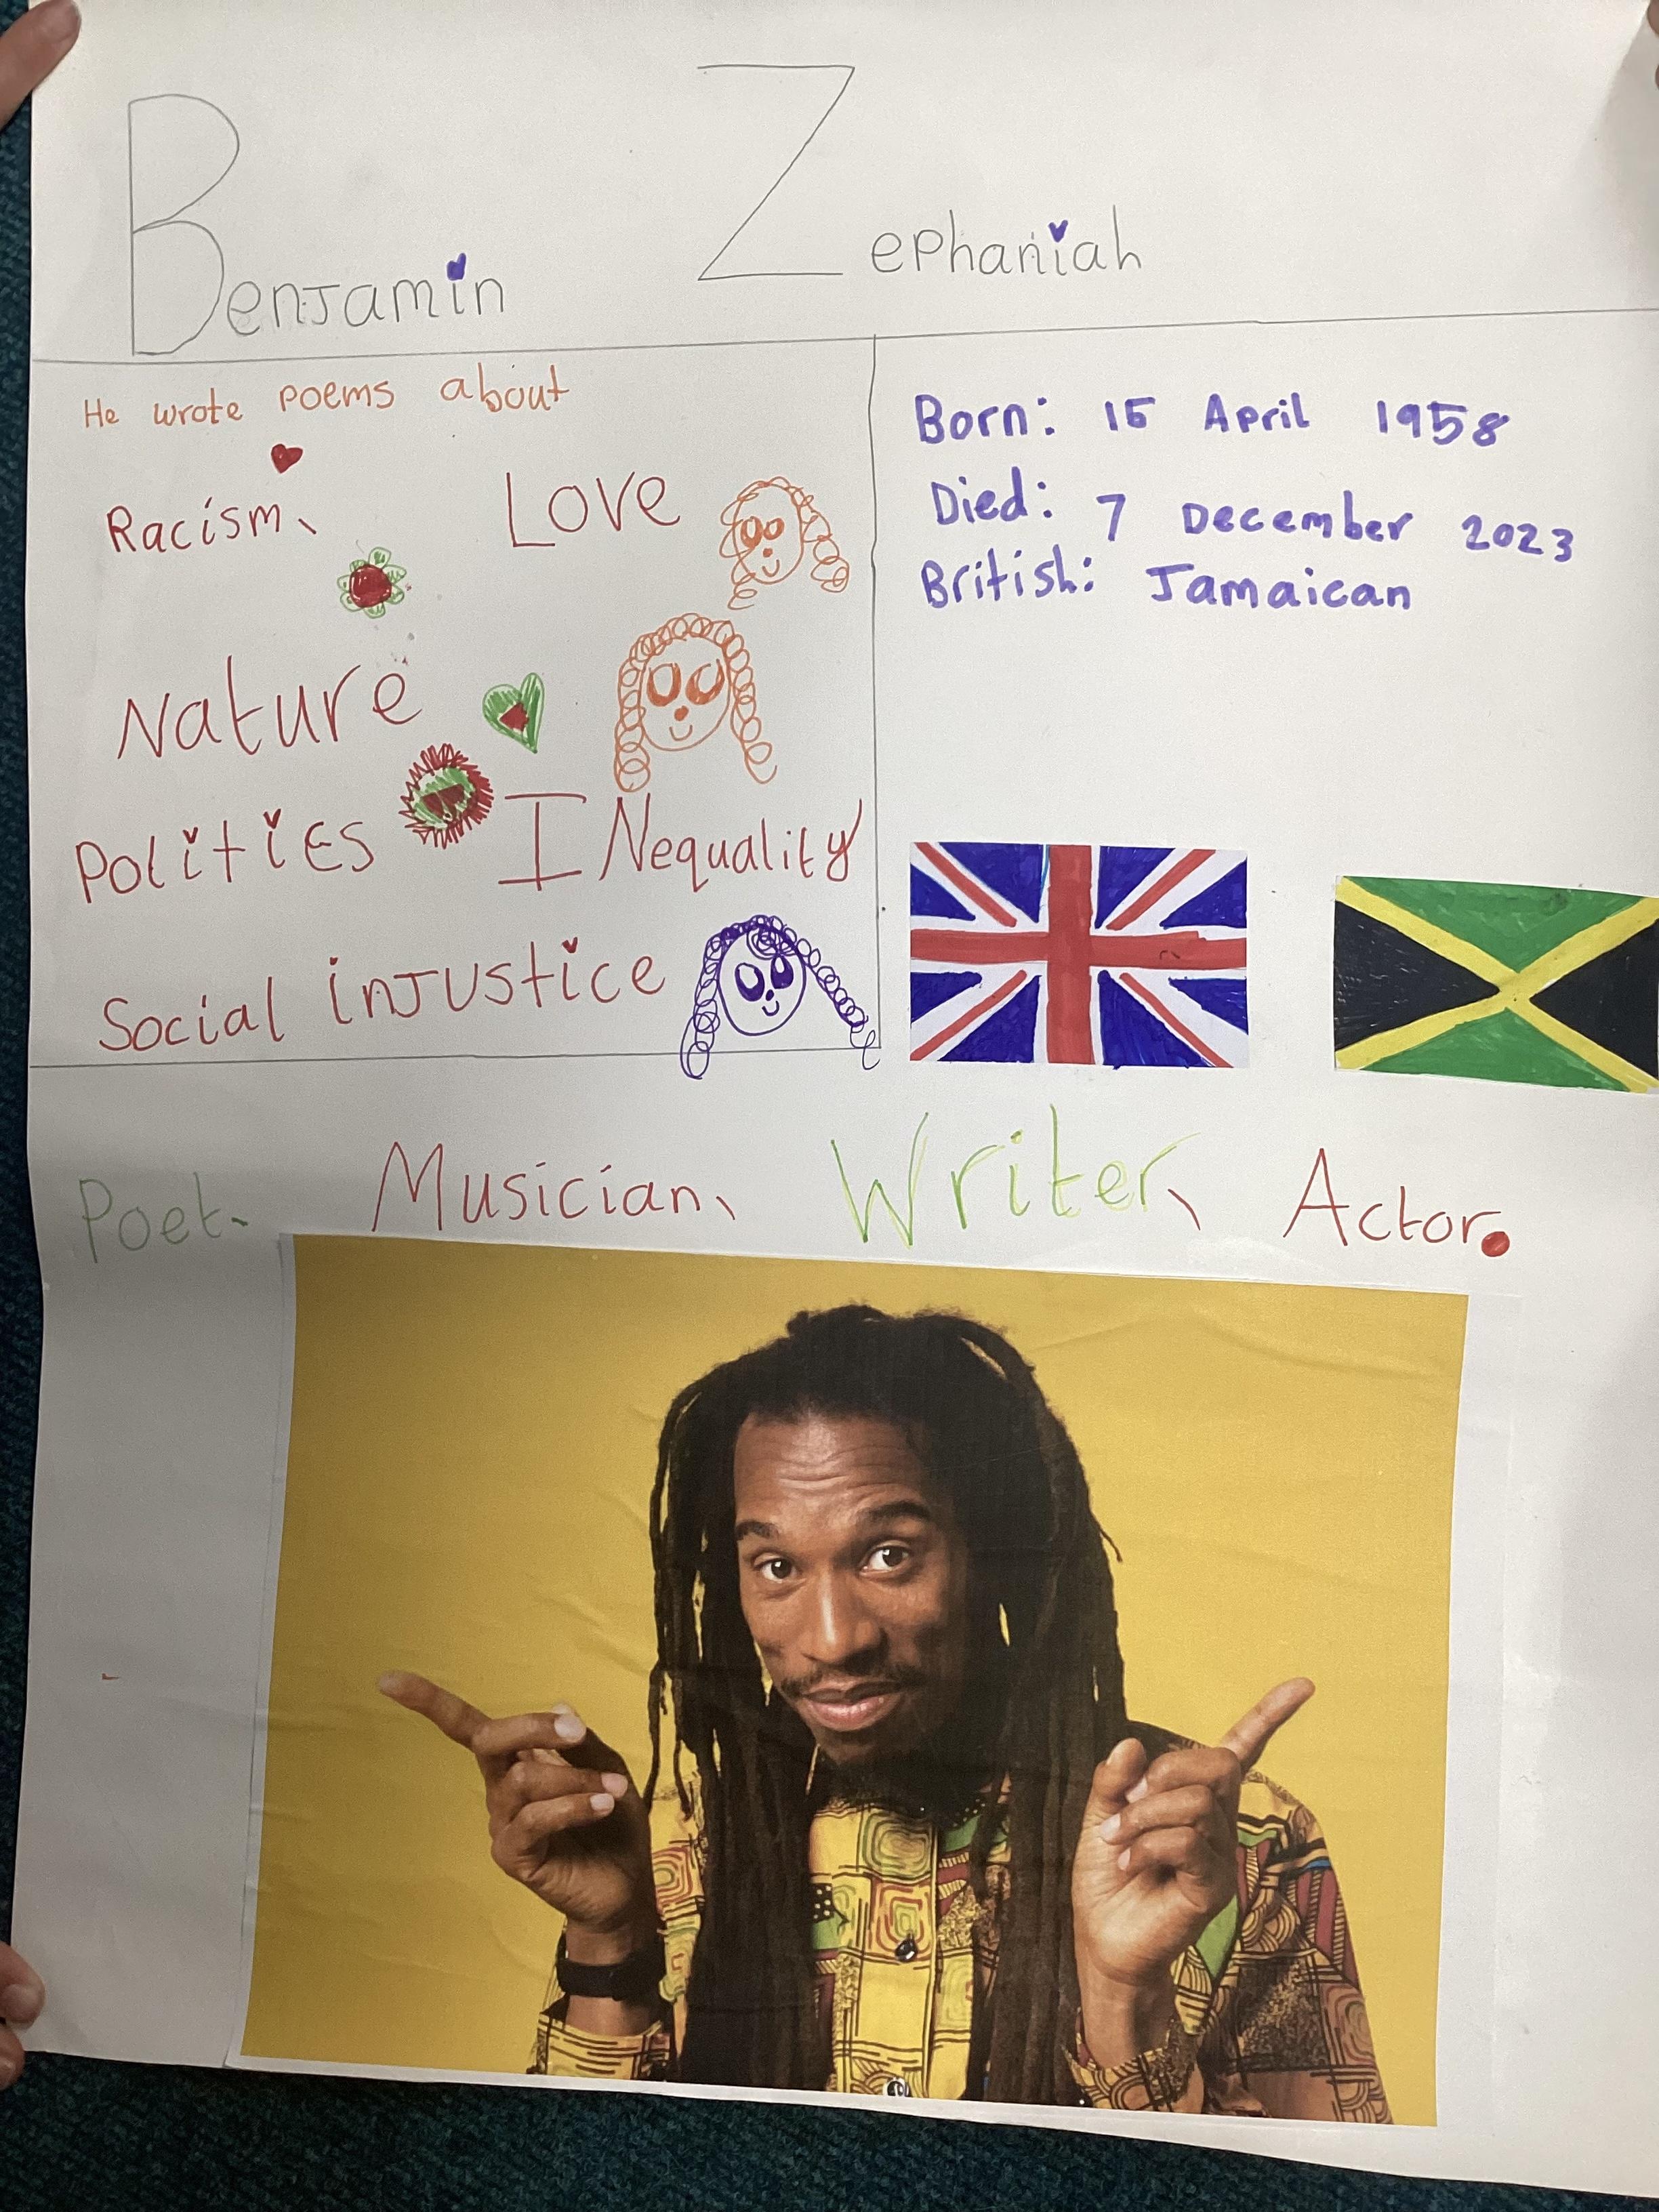 Benjamin Zephaniah
He wrote poems about
Racism, Love
Nature
Politics INequality
Social injustice
Born: 15 April 1958
Died: 7 December 2023
British: Jamaican
Poet, Musician, Writer, Actor.